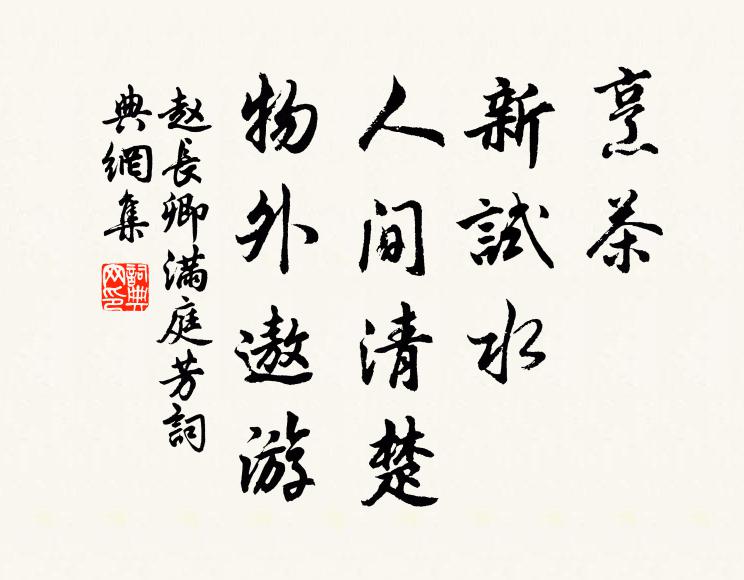 烹茶
新試水
人间清楚
物外遨游
赵長卿滿庭芳詞
典網集
詞典網印